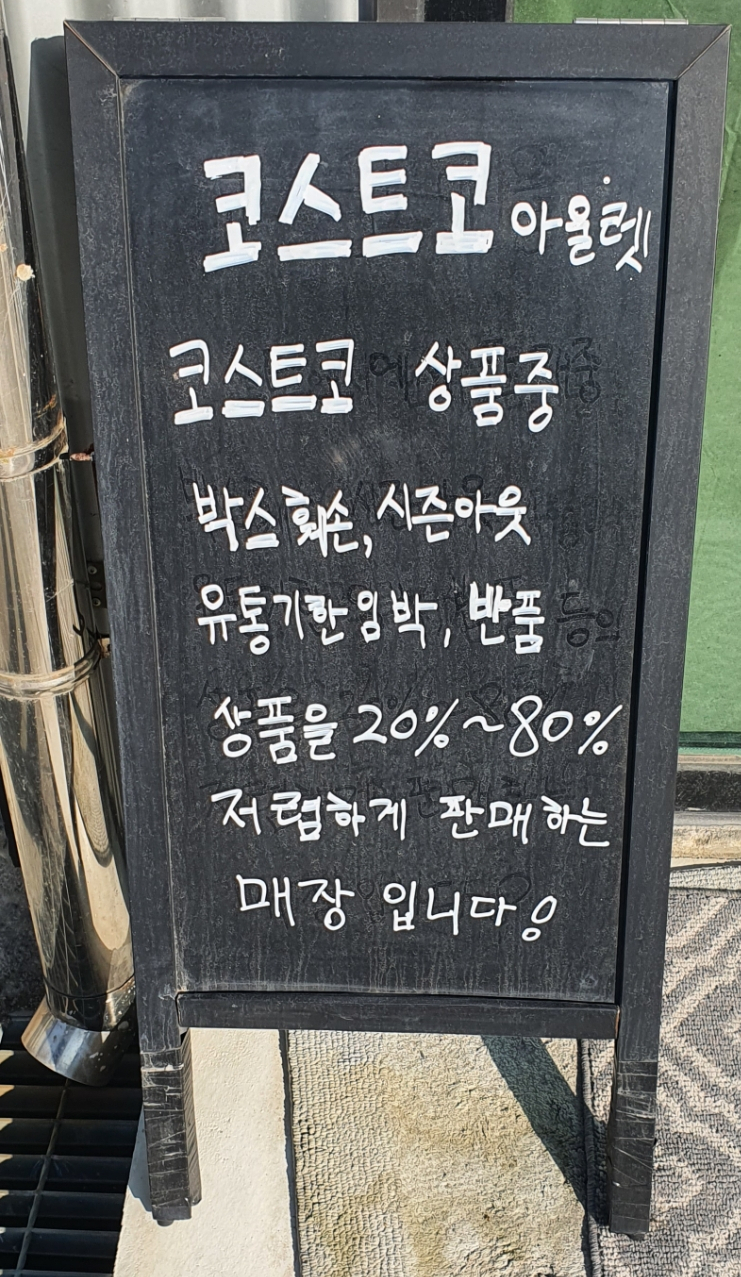 코스트코 아울렛
코스트코 상품중
박스훼손, 시즌아웃
유통기한임박, 반품
상품을 20%~80%
저렴하게 판매하는
매장 입니다!